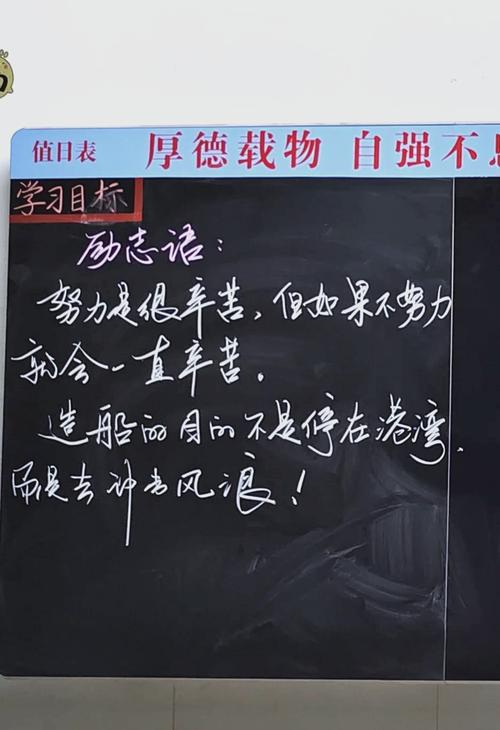 值日表 厚德载物 自强不息
学习目标
励志语：
努力是很辛苦，但如果不努力
就会一直辛苦。
造船的目的不是停在港湾，
而是去冲击风浪！